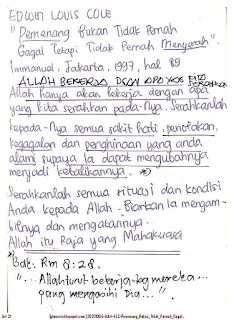 EDWIN LOUIS COLE
"Pemenang Bukan Tidak Pernah
Gagal Tetapi Tidak Pernah Menyerah".
Immanuel, Jakarta, 1997, hal 89
ALLAH BEKERJA DGN APA YG
Allah hanya akan bekerja dengan apa
yang kita serahkan pada-Nya. Serahkanlah
kepada-Nya semua sakit hati, penolakan,
kegagalan dan penghinaan yang anda
alami supaya Ia dapat mengubahnya
menjadi kebalikannya.
Serahkanlah semua situasi dan kondisi
Anda kepada Allah. Biarkan Ia mengam-
bilnya dan mengatannya.
Allah itu Raja yang Mahakuasa
Bdk. Rm 8:28.
"... Allah turut bekerja bg mereka...
yang mengasihi Dia..."